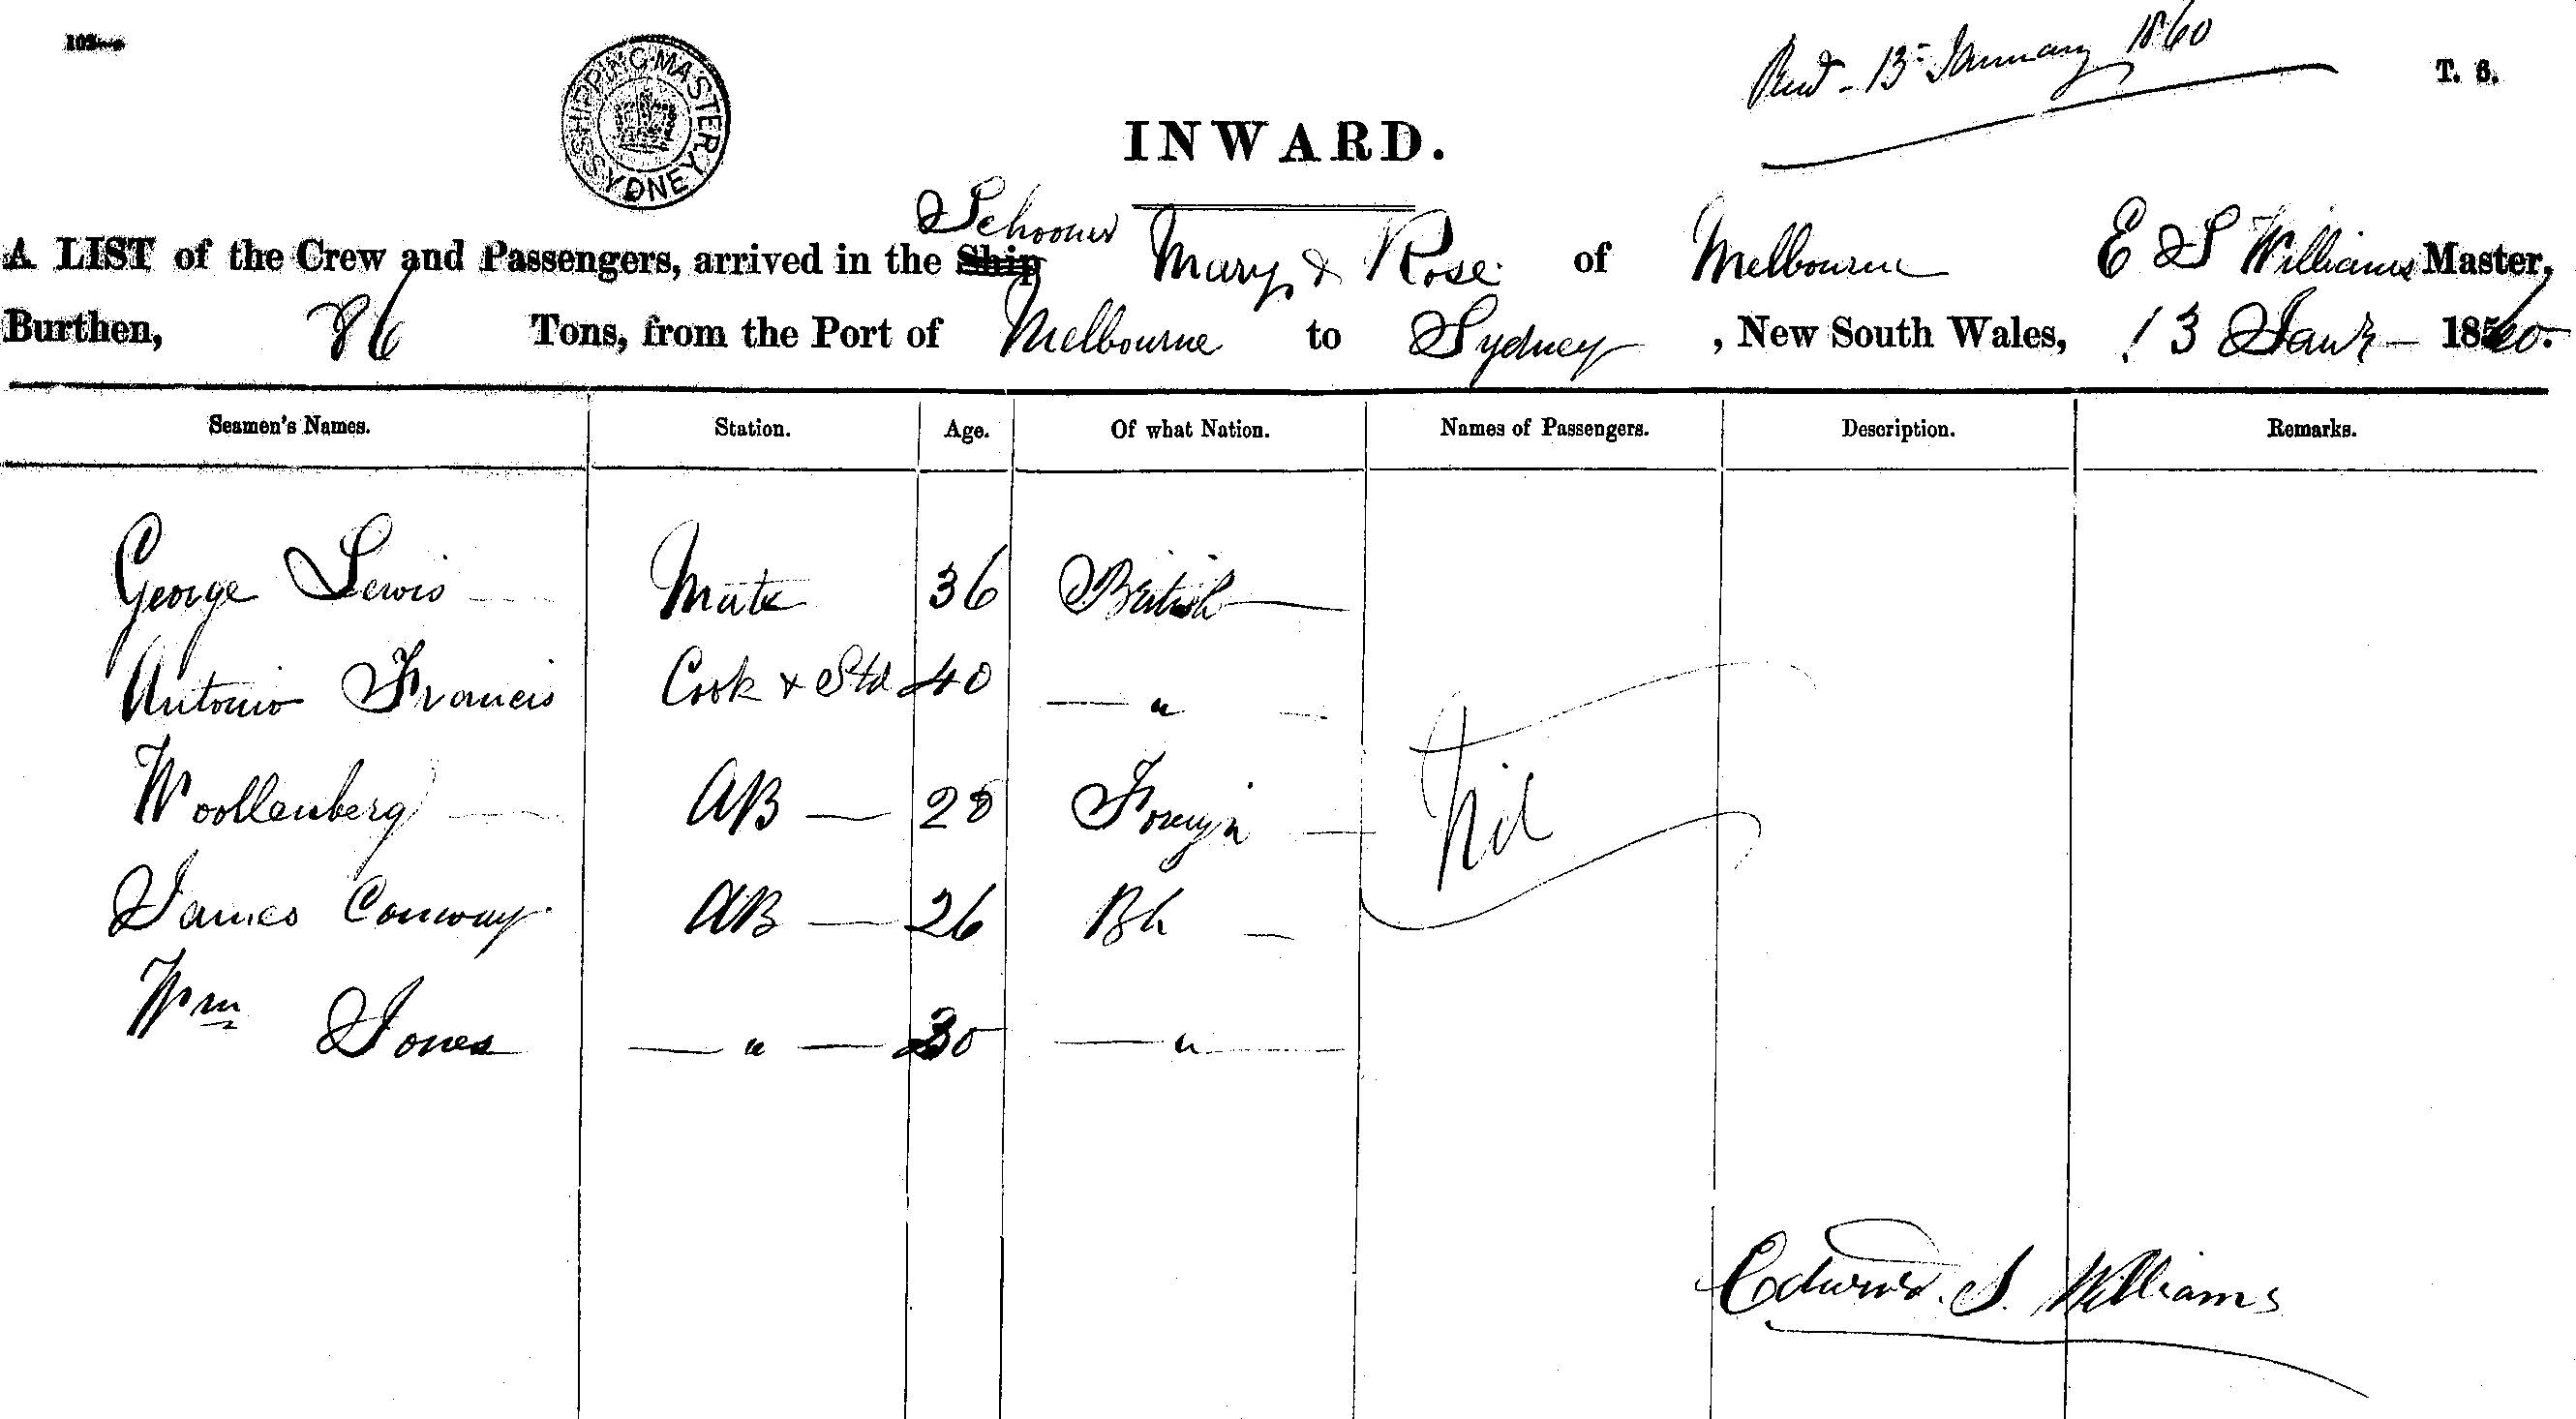 SHIPPING MASTER SYDNEY
13 January 1860
T. 6.
INWARD.
Schooner
A LIST of the Crew and Passengers, arrived in the Ship Mary & Rose of Melbourne E S Williams Master,
Burthen, 86 Tons, from the Port of Melbourne to Sydney, New South Wales, 13 Jany 1860.
Seamen's Names. Station. Age. Of what Nation. Names of Passengers. Description. Remarks.
George Lewis Mate 36 British
Antonio Francis Cook & Std 40 — " —
Woollenberg AB — 28 Foreign — Nil
James Conway AB — 26 Bh —
Wm Jones — " — 30 — " —
Edward. S. Williams